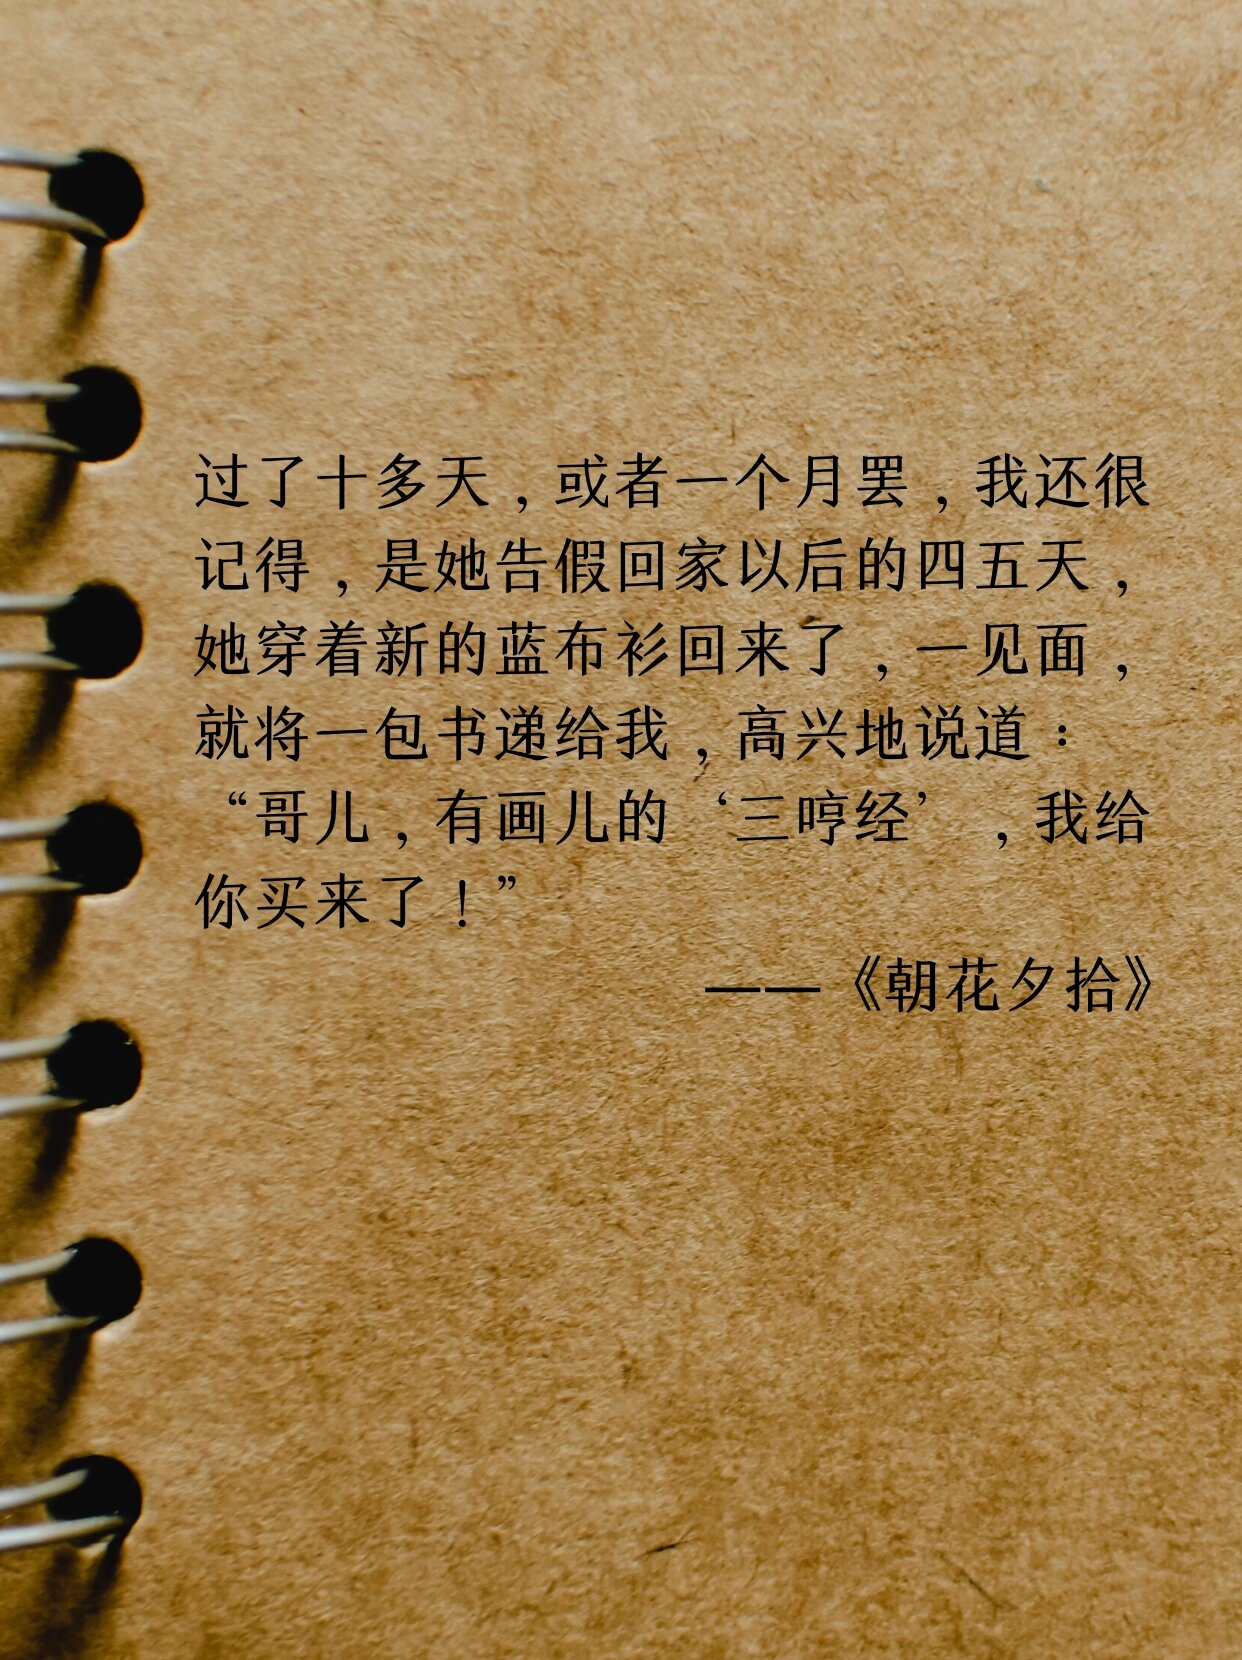 过了十多天，或者一个月罢，我还很
记得，是她告假回家以后的四五天，
她穿着新的蓝布衫回来了，一见面，
就将一包书递给我，高兴地说道：
“哥儿，有画儿的‘三哼经’，我给
你买来了！”
——《朝花夕拾》